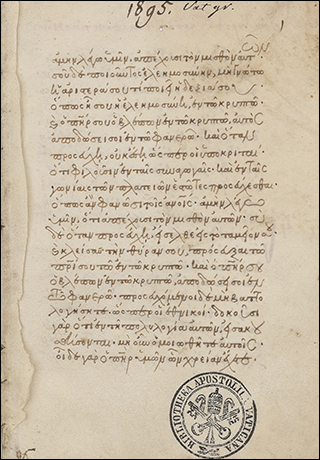 1895. Vat gr.
1
ἀμὴν λέγω ὑμῖν, ἀπέχουσι τὸν μισθὸν αὐτῶν
σοῦ δὲ ποιοῦντος ἐλεημοσύνην, μὴ γνώτω
ἡ ἀριστερά σου τί ποιεῖ ἡ δεξιά σου
ὅπως ᾖ σου ἡ ἐλεημοσύνη ἐν τῷ κρυπτῷ
καὶ ὁ πηρ σου ὁ βλέπων ἐν τῷ κρυπτῷ, αὐτὸς
ἀποδώσει σοι ἐν τῷ φανερῷ. καὶ ὅταν
προσεύχῃ, οὐκ ἔσῃ ὡς περ οἱ ὑποκριταί
ὅτι φιλοῦσιν ἐν ταῖς συναγωγαῖς. καὶ ἐν ταῖς
γωνίαις τῶν πλατειῶν ἑστῶτες προσεύχεσθαι
ὅπως ἂν φανῶσι τοῖς ἀνοις. ἀμὴν λέγω
ὑμῖν, ὅτι ἀπέχουσι τὸν μισθὸν αὐτῶν. σὺ
δὲ ὅταν προσεύχῃ, εἴσελθε εἰς τὸ ταμεῖόν σου
καὶ κλείσας τὴν θύραν σου, πρόσευξαι τῷ
πρί σου τῷ ἐν τῷ κρυπτῷ. καὶ ὁ πηρ σου
ὁ βλέπων ἐν τῷ κρυπτῷ, ἀποδώσει σοι ἐν
τῷ φανερῷ. προσευχόμενοι δὲ μὴ βαττο
λογήσητε ὥσπερ οἱ ἐθνικοί. δοκοῦσι
γὰρ ὅτι ἐν τῇ πολυλογίᾳ αὐτῶν, εἰσακου
σθήσονται. μὴ οὖν ὁμοιωθῆτε αὐτοῖς.
οἶδε γὰρ ὁ πηρ ὑμῶν ὧν χρείαν ἔχετε.
BIBLIOTHECA APOSTOLICA VATICANA